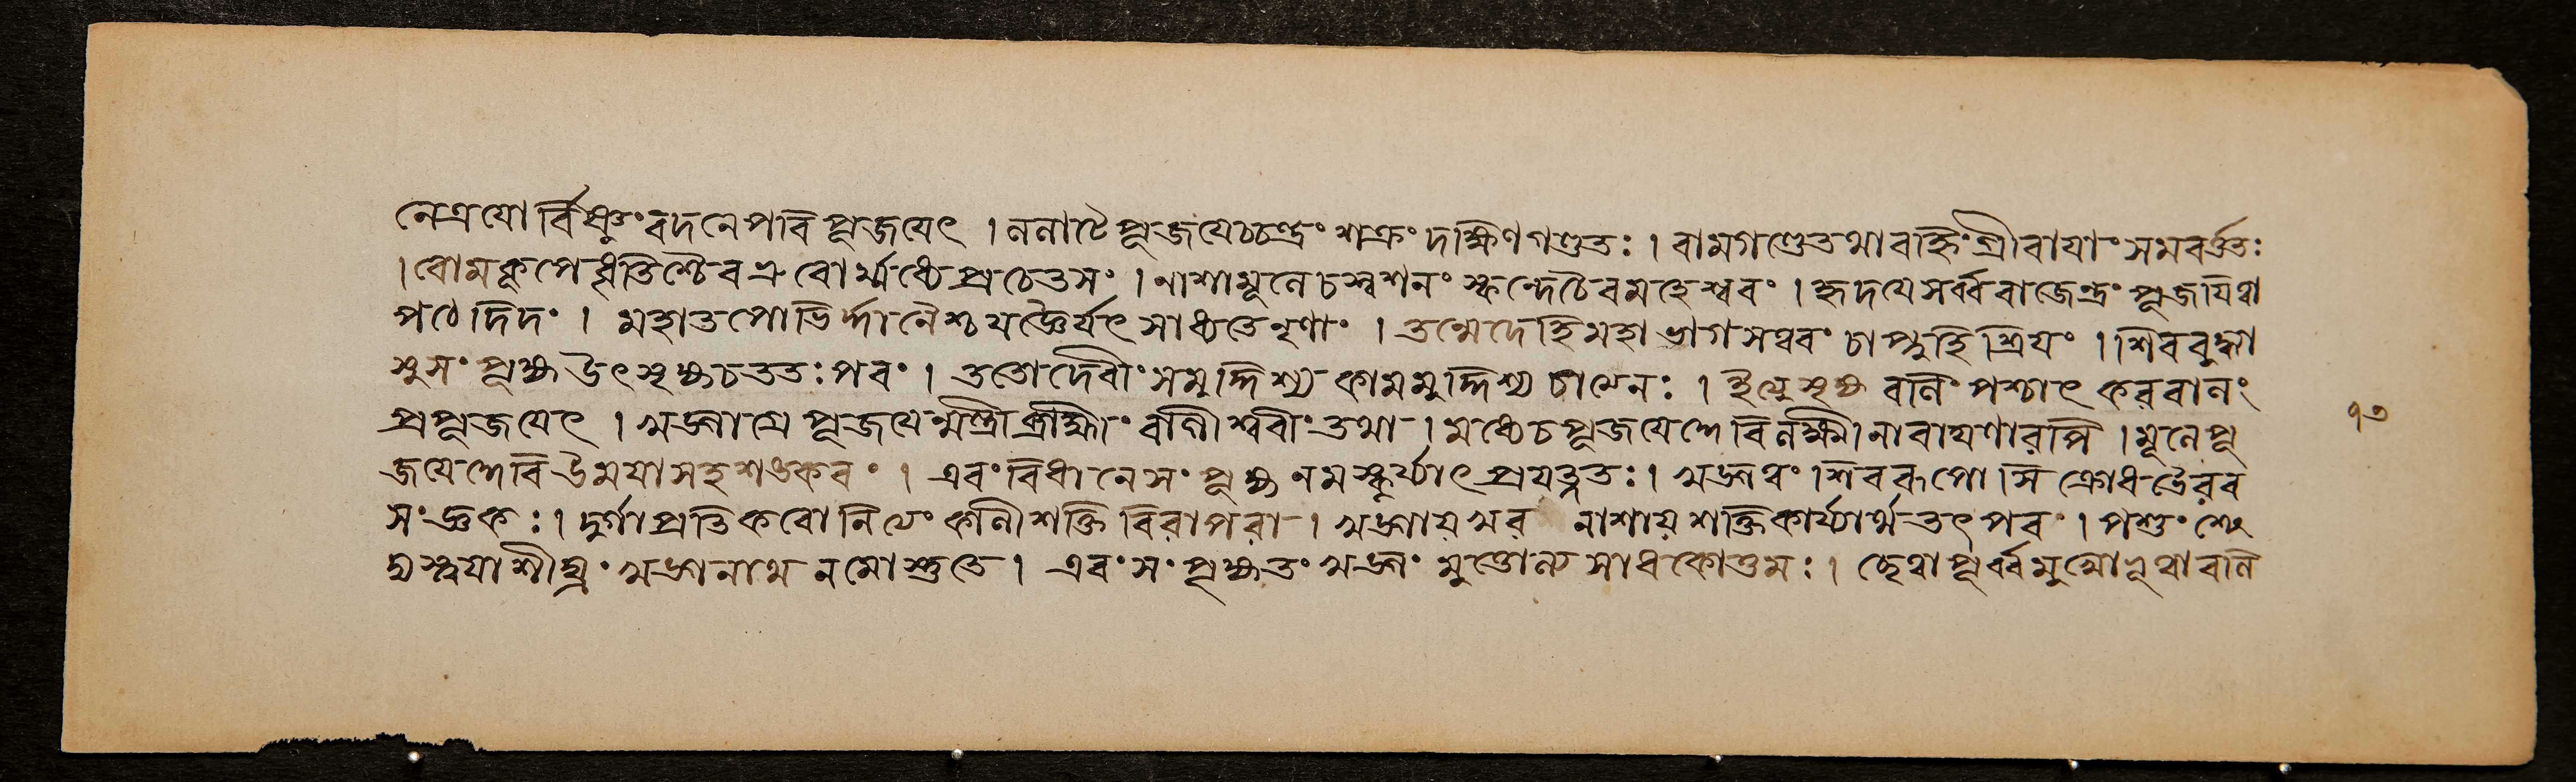 নেত্রযোর্বিষ্ণুং বদনে পরিপূজযেৎ । ললাটে পূজযেচ্চন্দ্রং শক্রং দক্ষিণগণ্ডতঃ । বামগণ্ডে তথা বহ্নিং গ্রীবাযাং সমবর্ত্তিতঃ
। রোমকূপে ধৃতিশ্চৈব ভ্রুবোর্ম্মধ্যে প্রচেতসং । নাশামূলে চ শ্বশনং স্কন্দে চৈব মহেশ্বরং । হৃদযে সর্ব্বরাজেন্দ্রং পূজযিত্বা
পঠেদিদং । মহাতপোভির্দ্দানৈশ্চ যজ্ঞৈর্যৎ সাধ্যতে নৃণাং । তন্মে দেহি মহাভাগ সত্বরং চাপ্নুহি শ্রিযং । শিব
সুসংপূজ্য উৎসৃজ্য চ ততঃ পরং । ততো দেবীং সমুদ্দিশ্য কামমুদ্দিশ্য চাত্মনঃ । বলিং পশ্চাৎ করবালং
প্রপূজযেৎ । খড্গাগ্রে পূজযেন্মন্ত্রী ব্রাহ্মীং বাগীশ্বরীং তথা । মধ্যে চ পূজযেদ্দেবি লক্ষ্মীনারাযণাবপি । মূলে পূ
জযেদ্দেবি উমযা সহ শঙ্করং । এবং বিধানে সংপূজ্য নমস্কুর্য্যাৎ প্রযত্নতঃ । খড্গত্বং শিবরূপোসি ক্রোধভৈরব
সংজ্ঞকঃ । দুর্গাপ্রীতিকরো নিত্যং শক্তি । খড্গায় নাশায় শক্তিকার্য্যার্থতৎপর । পশুং
স্ত্বযা শীঘ্রং খড্গনাথ নমোস্তুতে । এবং সংপূজ্য তং খড্গং সাধকোত্তমঃ । পূর্ব্বমুখো ভূত্বা বলি
১৩